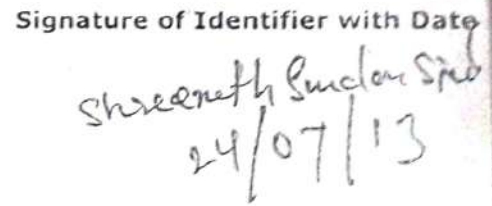 Signature of Identifier with Date
Shreenath
24/07/13